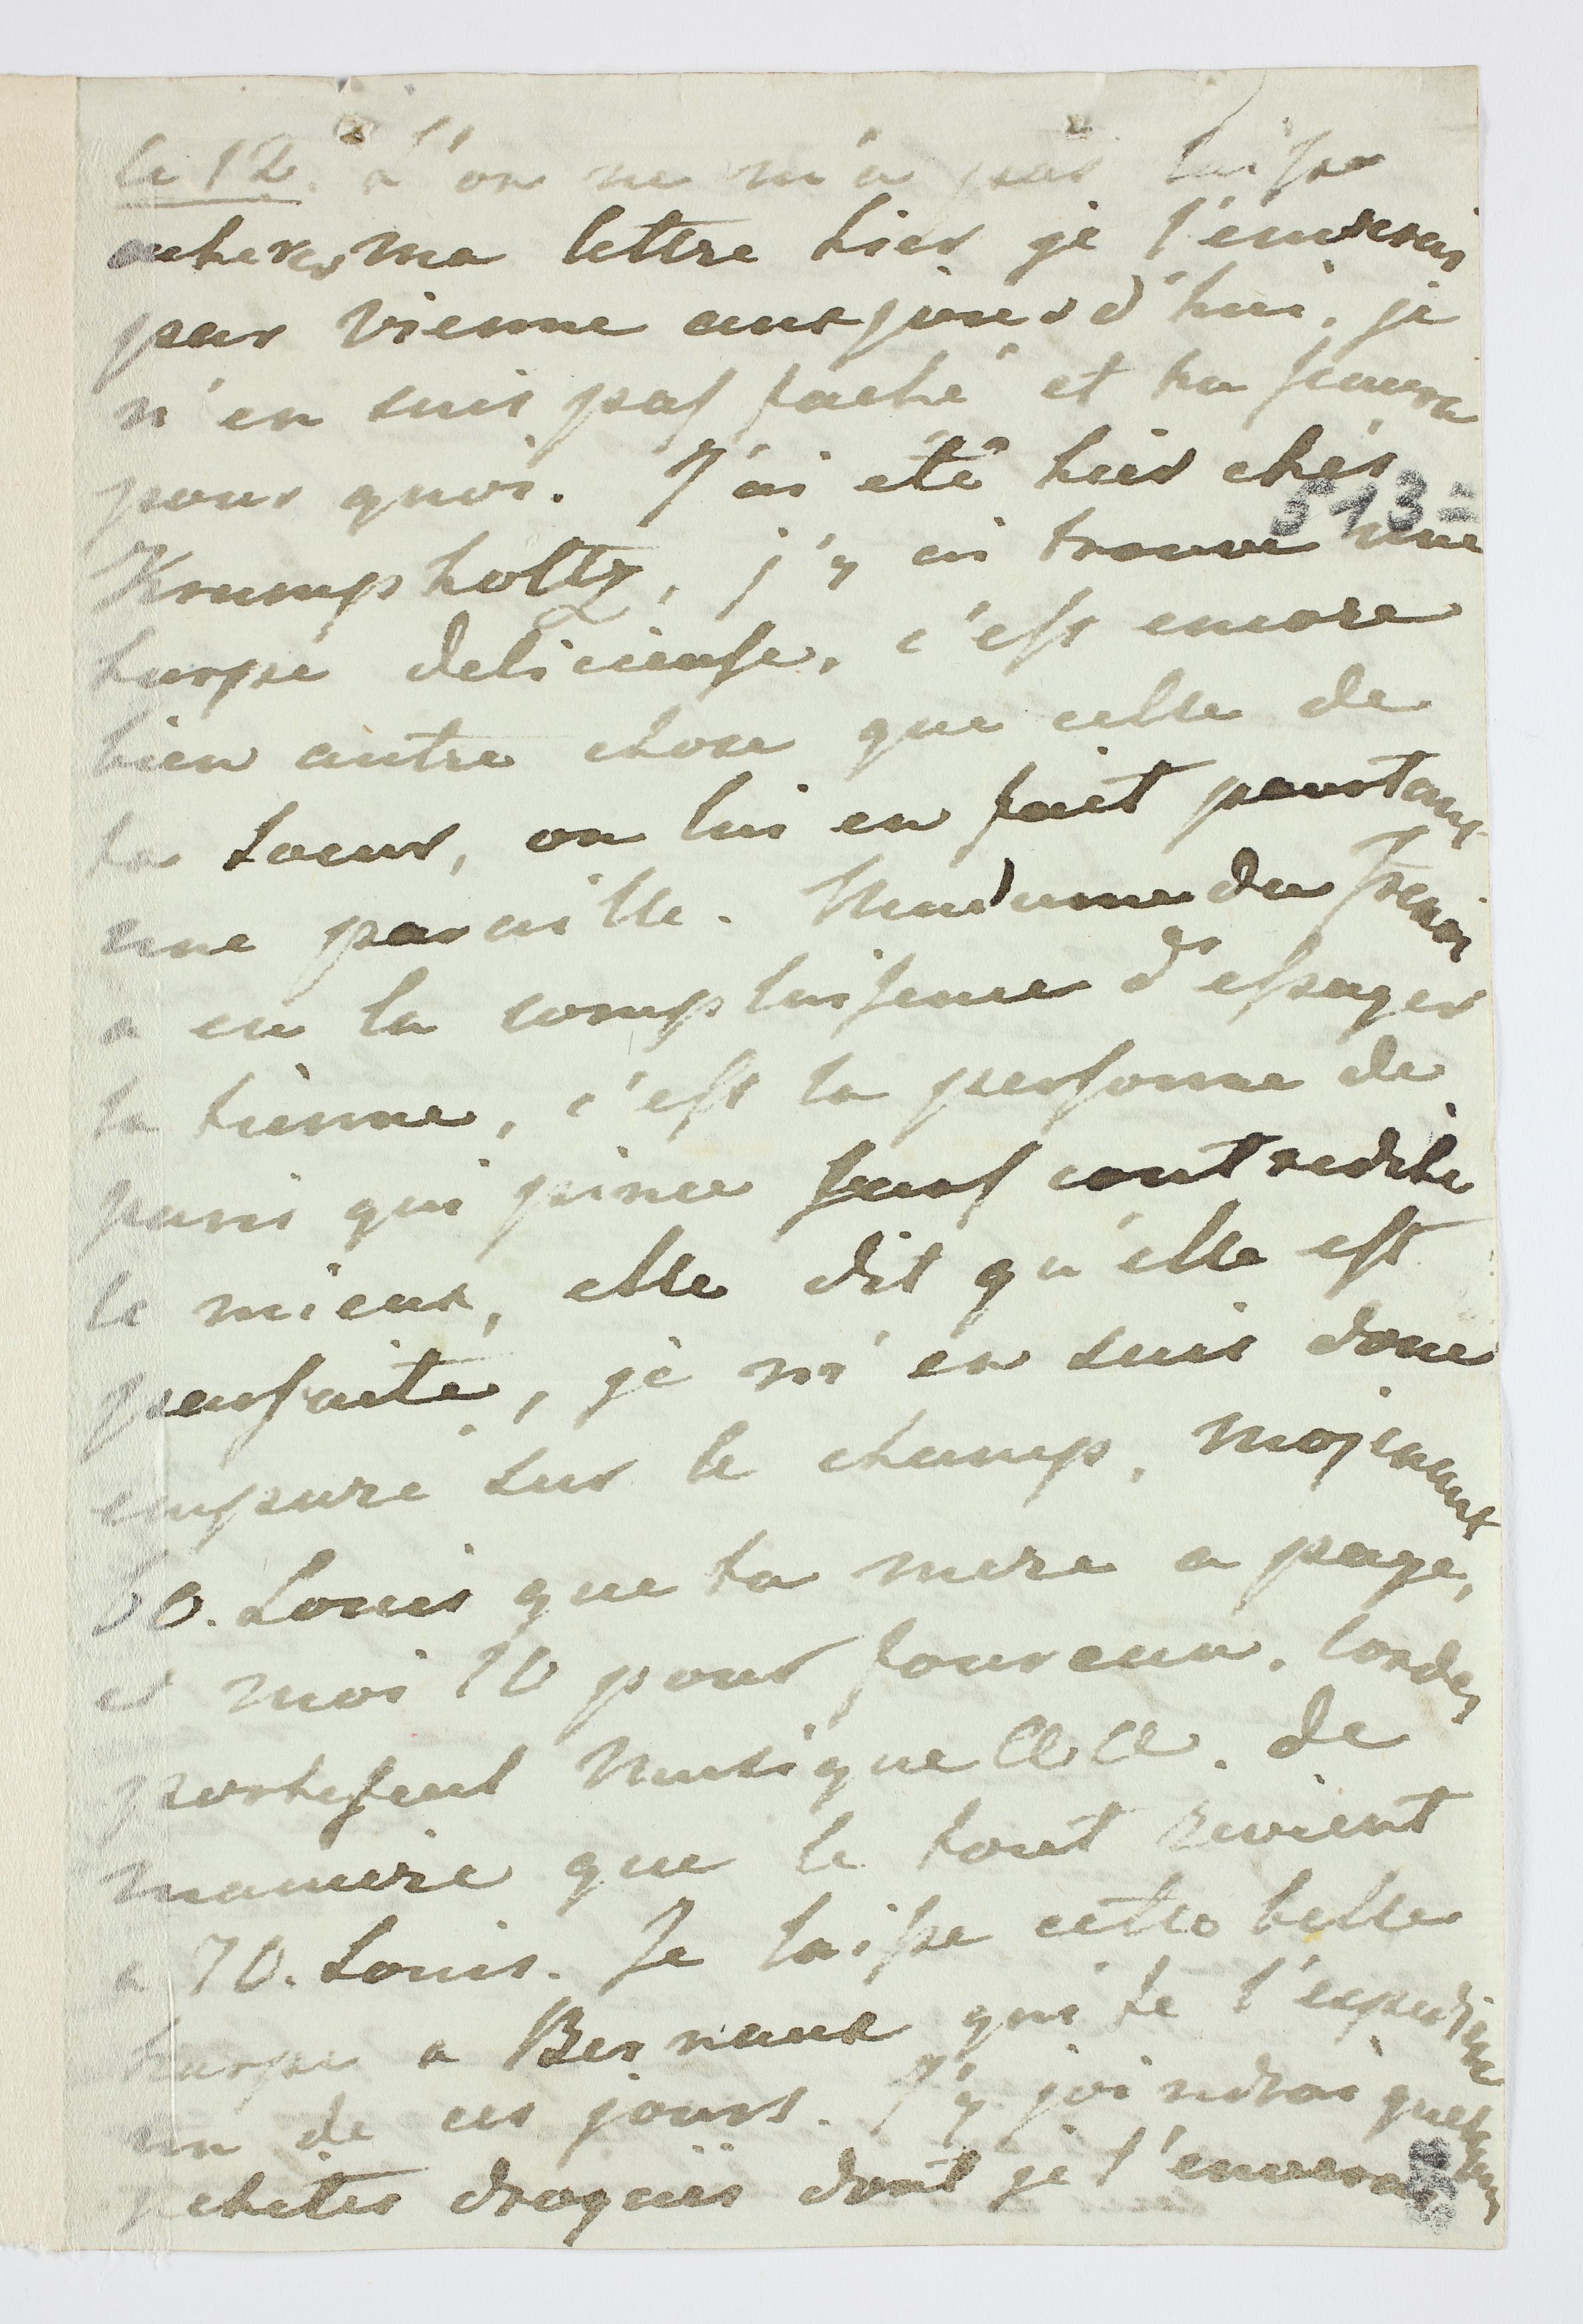 le 12. L'on ne m'a pas laissé
achever ma lettre hier je l'enverrai
par Vienne aujourd'hui. je
n'en suis pas faché et tu sauras
pour quoi. J'ai été hier chés
513
Krumpholtz, j'y ai trouve une
harpe delicieuse, c'est encore
bien autre chose que celle de
ta soeur, on lui en fait pourtant
une pareille. Madame de
a eu la complaisence d'essayer
la tienne, c'est la personne de
paris qui pince sans contredit
le mieux, elle dit qu'elle est
parfaite, je m'en suis donc
emparé sur le champ, mojenant
60. Louis que ta mere a payé,
et moi 10 pour foureau. Cordes
Musique &c &c. de
maniere que le tout revient
a 70. Louis. Je laisse cette belle
harpe a qui te l'expediera
un de ces jours. J'y joindrai quelques
petites drogues dont je t'enverrai